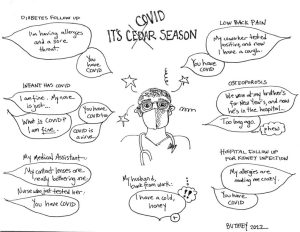 COVID
ITS CEDAR SEASON
DIABETES FOLLOW UP
I'm having allergies
and a sore
throat.
You
have
COVID
LOW BACK PAIN
My coworker tested
positive and now
I have a cough.
You
have
COVID
INFANT HAS COVID
I am fine. My nose
is just...
You have
COVID
What is COVID?
I am fine.
COVID is
a virus.
OSTEOPOROSIS
We were at my brother's
for New Year's, and now
he's in the hospital.
Too long ago.
phew
My Medical Assistant
My contact lenses are
really bothering me.
Nurse who just tested her.
You have COVID
HOSPITAL FOLLOW UP
FOR KIDNEY INFECTION
My allergies are
making me crazy.
You have
COVID
My husband,
back from work:
I have a cold,
honey
!?
BUTHEY 2022